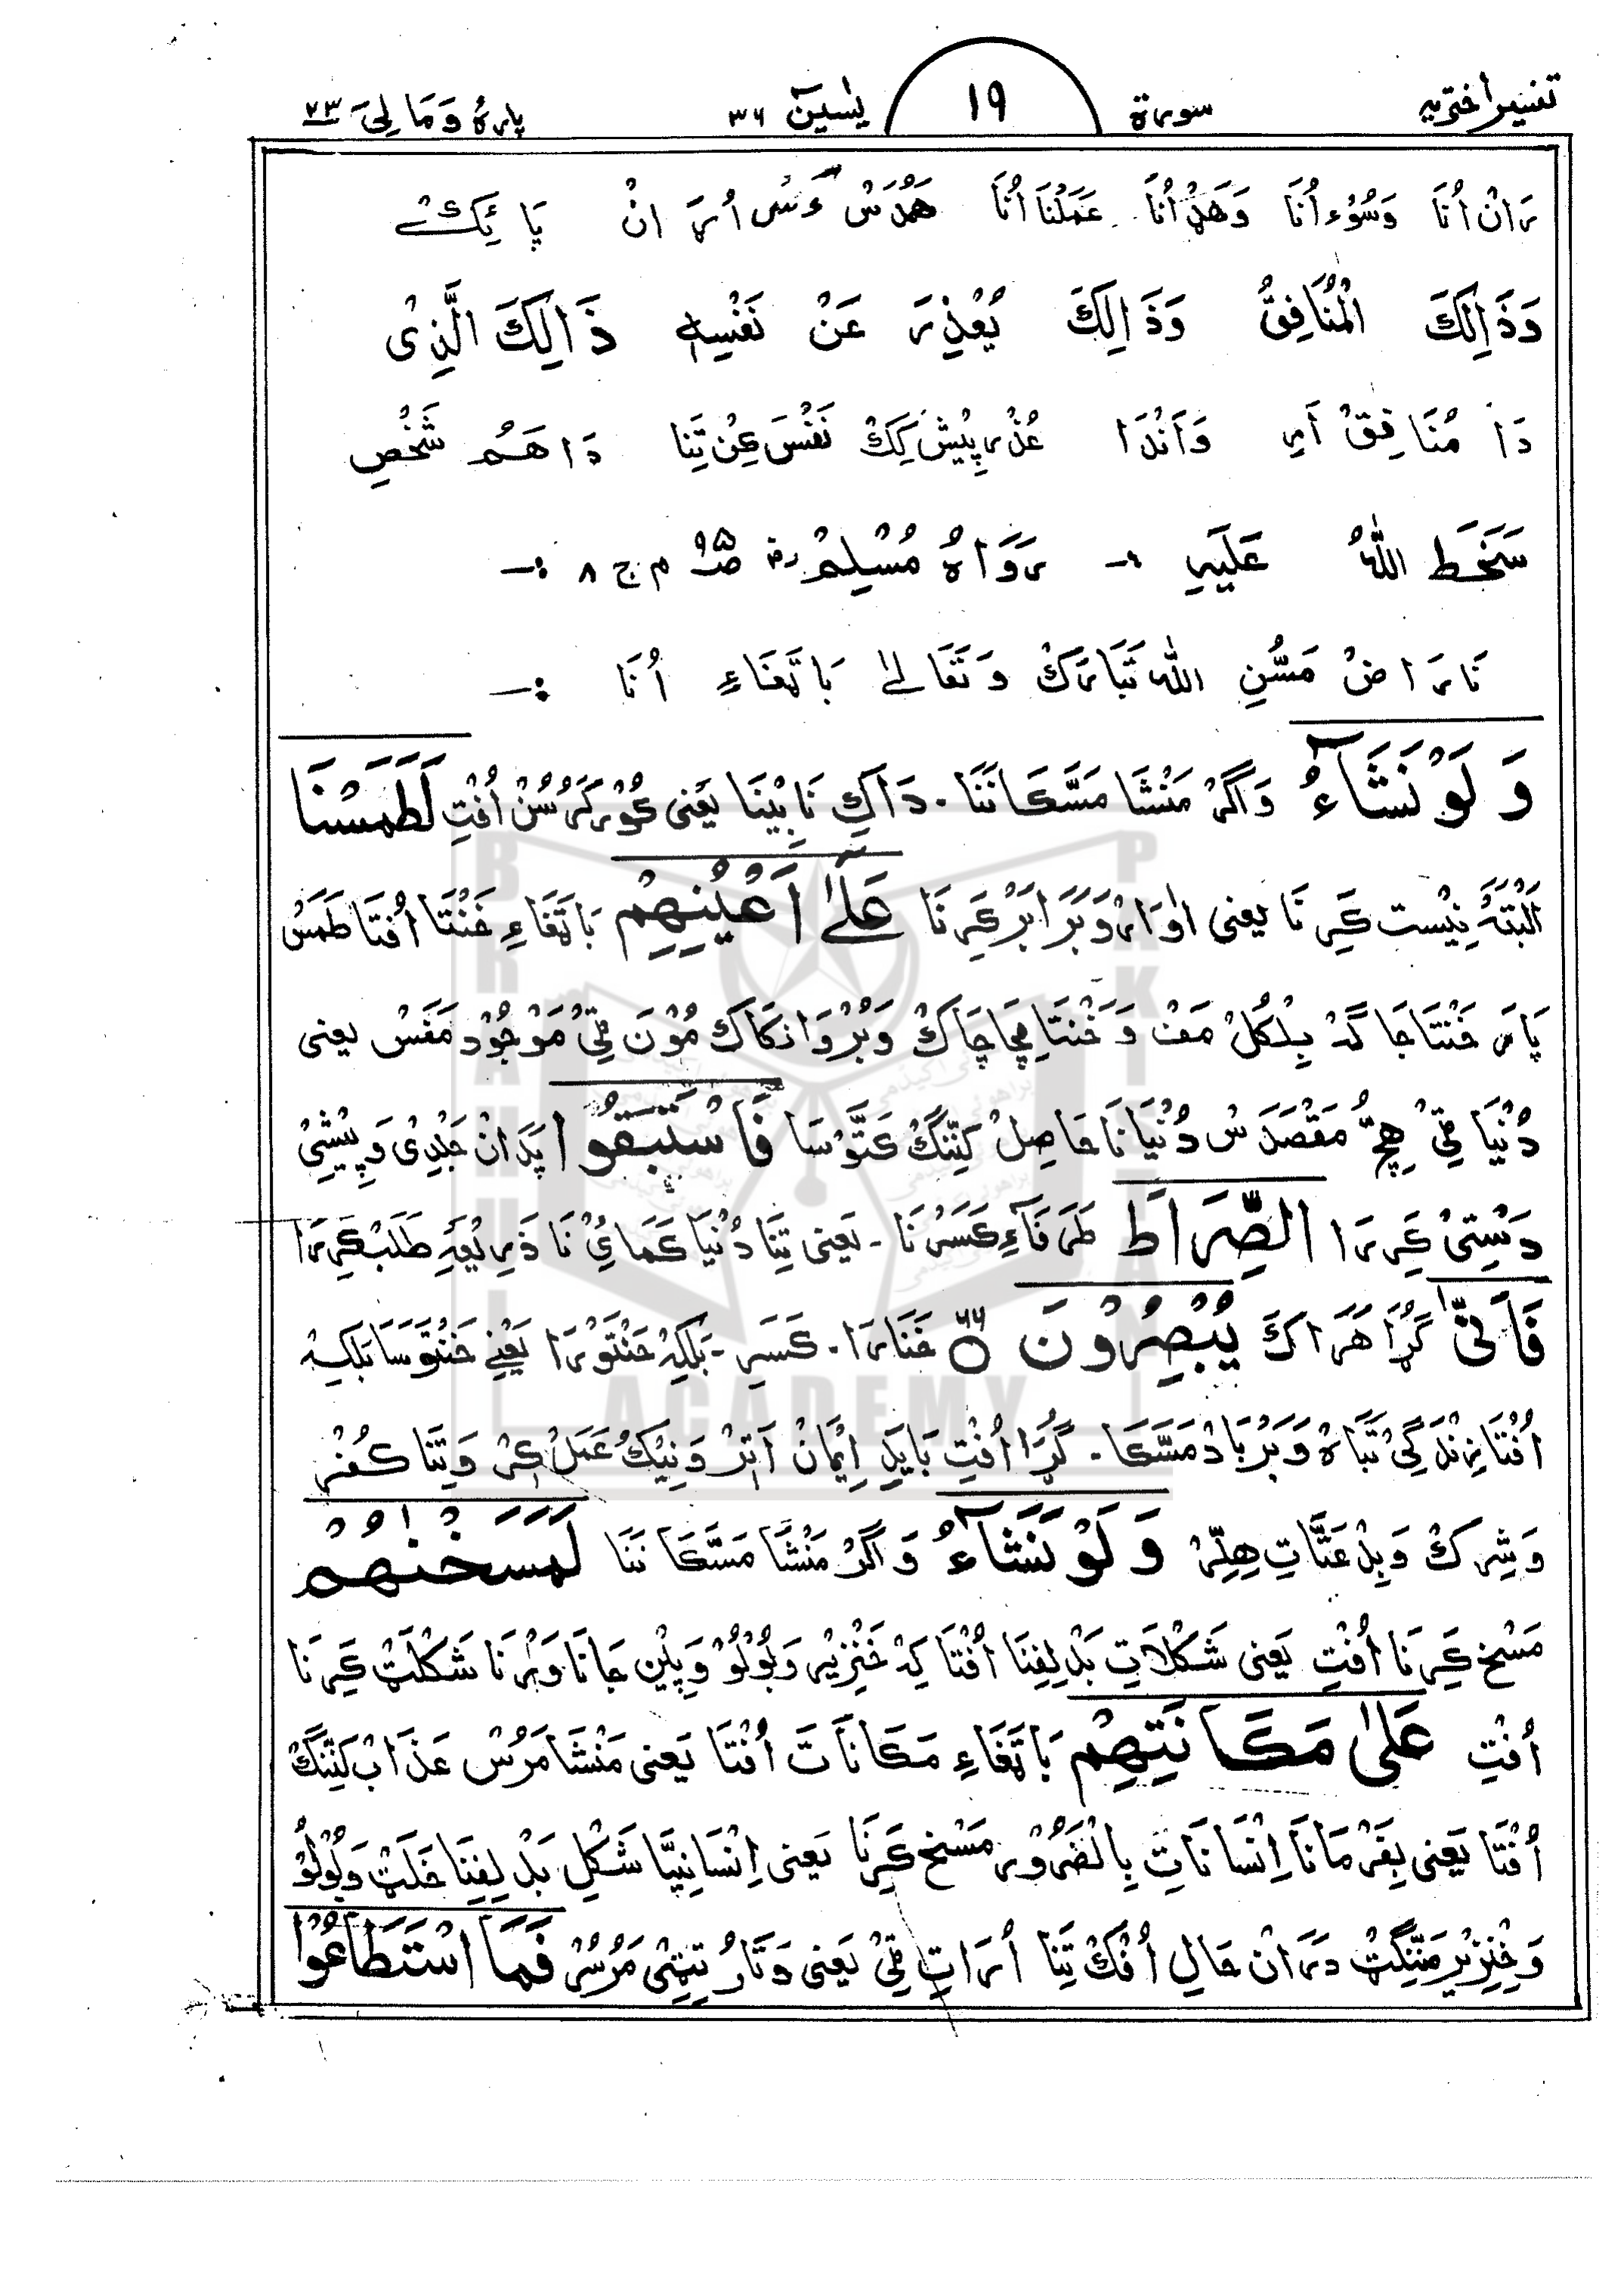 تفسیر اختریہ سورة ١٩ یٰسین ٣٦ پارہ وَمَا لِیَ ٢٣
رَانْ اُنَا وَسُوْء اُنَا وَهَڈْ اُنَا عَمَلْنَا اُنَا هَمُدَسْ ءَسُ اُرَ انْ پَا ئِکْ
وَذَالِكَ الْمُنَافِقُ وَذَالِكَ يُعْذِرَ عَنْ نَفْسِهٖ ذَالِكَ الَّذِىْ
دَا مُنَافِقْ اَرِ وَاَنْدَا عُذْرپِیْش کِکْ نَفْسَ کِنْ تِنَا دَا هَمُ شَخْصِ
سَخَطَ اللهُ عَلَيْهِ ۔ رَوَاهُ مُسْلِمْ م ج ٨ :۔
نَارَاضْ مَسُّنِ اللّٰه تَبَارَكْ وَتَعَالىٰ بَاتِغَاءِ اُنَا :۔
وَلَوْ نَشَآءُ وَاگَرْ مَنْشَا مَسَّکَانَنَا ۔ دَاکِ نَابِیْنَا یَعْنی کُوْرکَرُسُنْ اُفْتِ لَطَمَسْنَا
اَلْبَتَّہْ نِیْست کَرِنَا یعنی اوَارْوَبَرَابَرْکَرِنَا عَلٰٓى اَعْيُنِهِمْ بَاتِغَاءِ خَنْتَا اُفْتَا طَمَسْ
پَارَ خَنْتَاجَاگَہ بِلْکُلْ مَفْ وَخَنْتَا چَاچَاکْ وَبُرْوَانکَاک مُوْنَ ٹِیْ مَوْجُوْد مَفَسْ یعنی
دُنْیَا ٹِیْ هِچُّ مَقْصَدَسْ دُنْیَانَاحَاصِلْ کِنِّنگْ کَتَّوْسَا فَاسْتَبَقُوا پَدَانْ جَلدِیْ وَپِیْشِیْ
دَسْتِیْ کَرِرَا الصِّرَاطَ طَرَفَآءِکَسَرْنَا ۔ یَعنی تِنَا دُنْیَا کَمَائِیْ نَا ذَرِیْعَہِ طَلَبْ کَرِرَا
فَاَنّٰى گُڑَا هَرَاکَ يُبْصِرُوْنَ ٦٦ خَنَارَا ۔ کَسَرِ ۔ بَلْکِہ خَنْتَوْرَا یَعْنے خَنْتَوْسَا بَلْکِہ
اُفْتَا زِنْدَگِیْ تَبَاہْ وَبَرْبَادْ مَسَّکَا ۔ گُڑَا اُفْتِ بَایَدِ اِیْمَانْ اَتِرْ وَنِیْکْ عَمَلْ کِرْ وَتِنَا کُفْرِ
وَشِرکْ وَبِدْعَتَاتِ هِلِّرْ وَلَوْ نَشَآءُ وَاگَرْ مَنْشَا مَسَّکَا نَنَا لَمَسَخْنٰهُمْ
مَسْخ کَرِنَا اُفْتِ یَعنی شَکْلَاتِ بَدْلِفِنَا اُفْتَا کِہ خَنْزِیْر وَبُوْلُوْ وَپِلِن جَانَاوَرْنَا شَکْلَٹْ کَرِنَا
اُفْتِ عَلٰى مَكَانَتِهِمْ بَاتِغَاءِ مَکَانَاتَ اُفْتَا یَعنی مَنْشَا مَرُسْ عَذَابْ کِنِّنگْ
اُفْتَا یَعنی بِفَرْمَانَا اِنْسَانَاتِ بِالْضَرُوْر مَسْخ کَرِنَا یَعنی اِنْسَانِیَّا شَکْلِ بَدْلِفِنَا خَلَٹْ وَبُوْلُوْ
وَخِنْزِیْر مَنِّنگَٹْ دَرَانْ حَالِ اُفْکْ تِنَا اُرَاتِ ٹِیْ یَعنی مَرُسْر فَمَا اسْتَطَاعُوْا